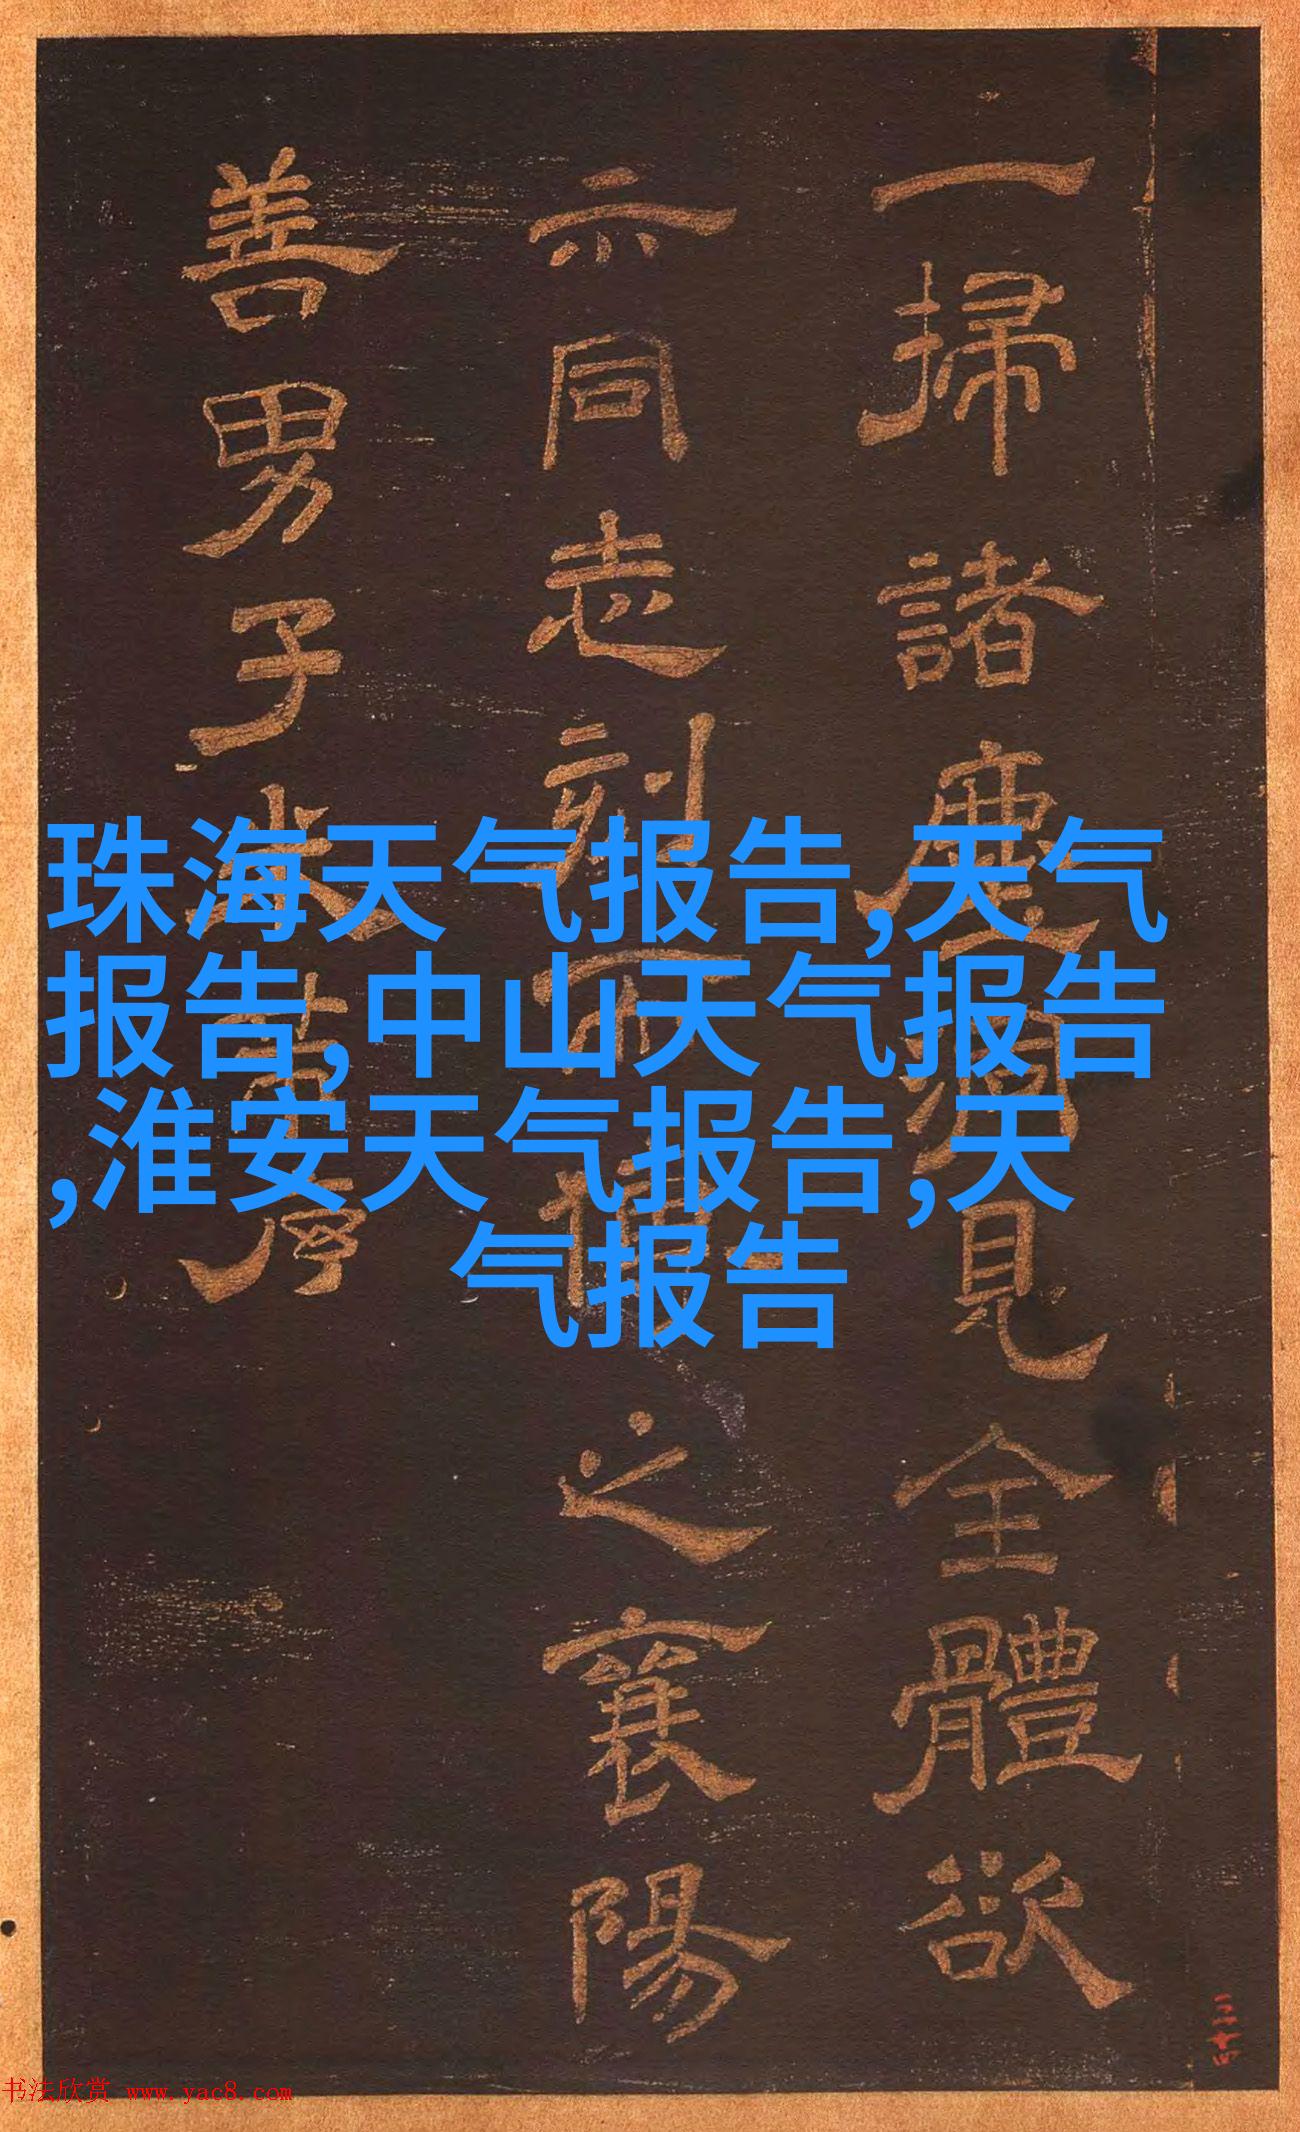 一掃諸塵須見全體欲
示同志刻而傳之襄陽
善男子米芾序
珠海天气报告,天气
报告,中山天气报告
,淮安天气报告,天
气报告
三十四
书法欣赏 www.yac8.com